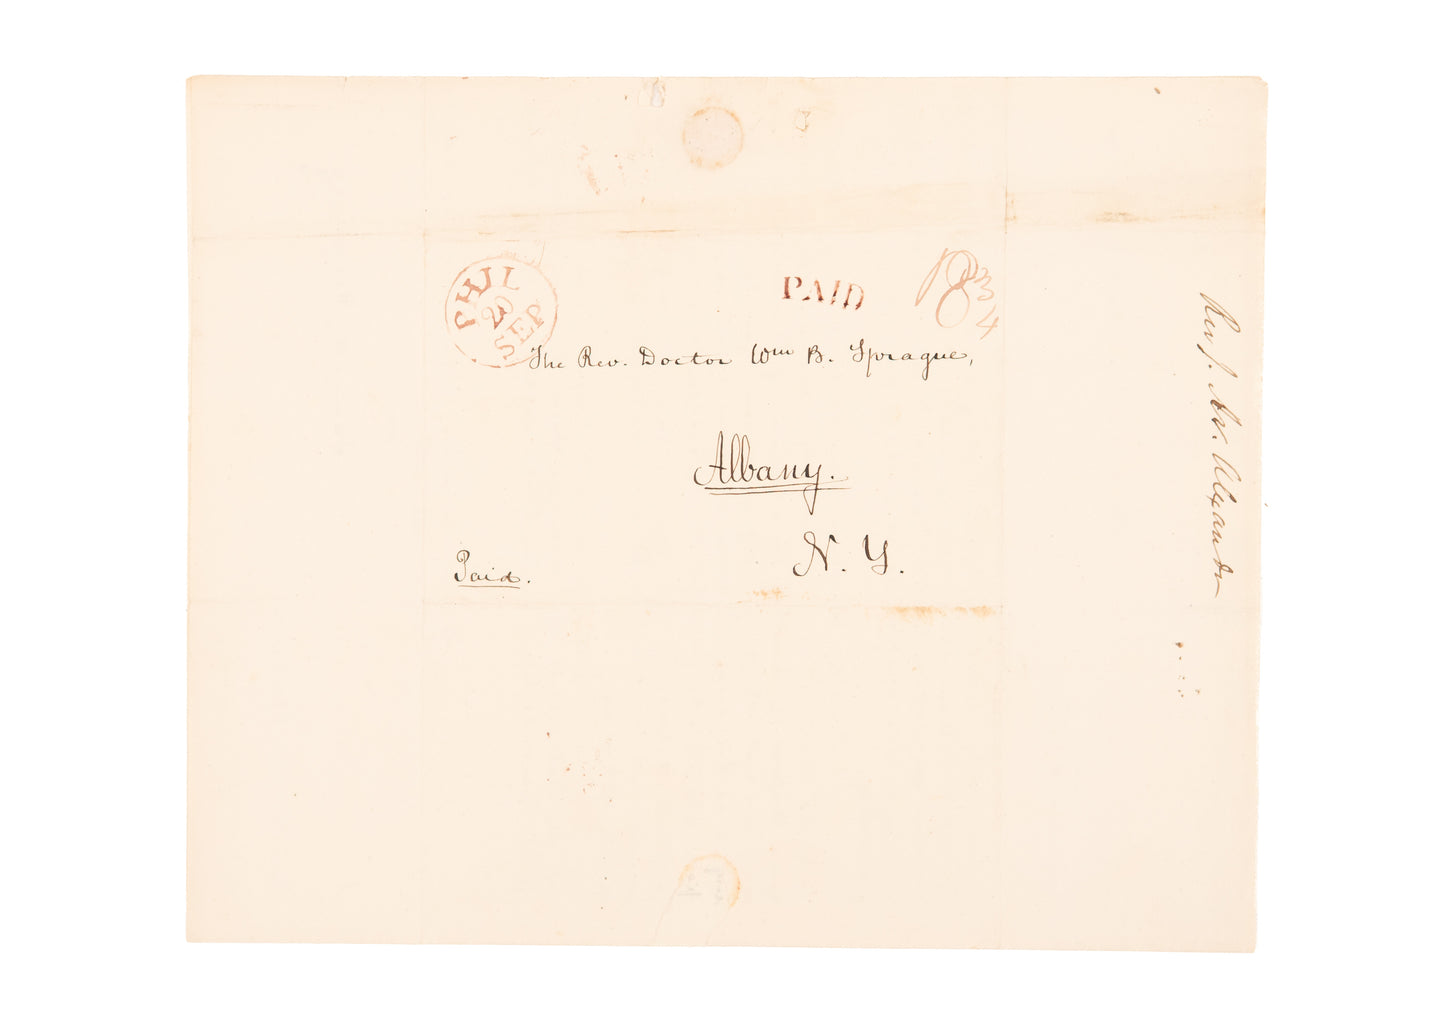 PHIL
20
SEP
PAID
18 3/4
The Rev. Doctor Wm B. Sprague,
Albany.
N. Y.
Paid.
Rev J. Alexander